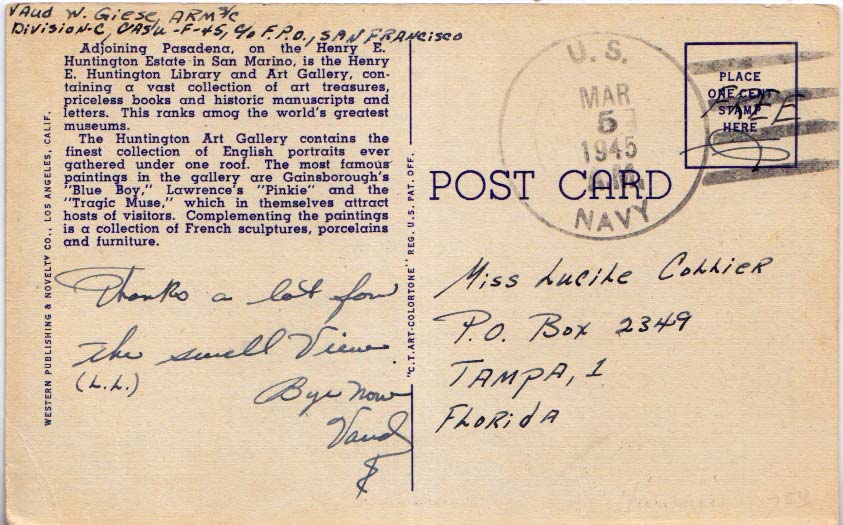 Vaud W. Giese, ARM 3/C
Division-C, CASU-F-45, C/o F.P.O., SAN FRANCISCO
Adjoining Pasadena, on the Henry E.
Huntington Estate in San Marino, is the Henry
E. Huntington Library and Art Gallery, con-
taining a vast collection of art treasures,
priceless books and historic manuscripts and
letters. This ranks amog the world's greatest
museums.
The Huntington Art Gallery contains the
finest collection of English portraits ever
gathered under one roof. The most famous
paintings in the gallery are Gainsborough's
"Blue Boy," Lawrence's "Pinkie" and the
"Tragic Muse," which in themselves attract
hosts of visitors. Complementing the paintings
is a collection of French sculptures, porcelains
and furniture.
WESTERN PUBLISHING & NOVELTY CO., LOS ANGELES, CALIF.
Thanks a lot for
the swell View
(L.L.)
Bye Now
Vaud
"C.T. ART-COLORTONE" REG. U.S. PAT. OFF.
POST CARD
U.S.
MAR
5
1945
A.M.
NAVY
PLACE
ONE CENT
STAMP
HERE
FREE
Miss Lucile Collier
P.O. Box 2349
TAMPA, 1
FLORIDA